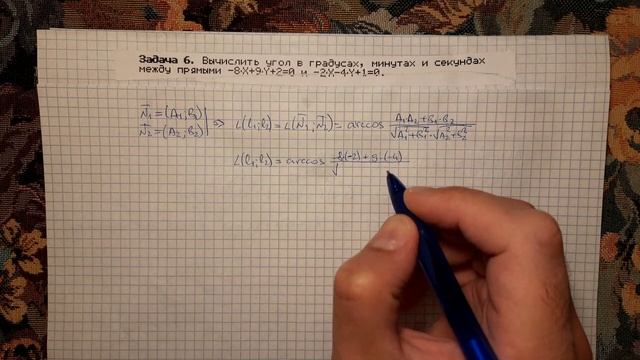 Задача 6. Вычислить угол в градусах, минутах и секундах
между прямыми -8·X+9·Y+2=0 и -2·X-4·Y+1=0.
N̅₁ = (A₁; B₁) | ⇒ ∠(l₁; l₂) = ∠(N̅₁; N̅₂) = arccos (A₁·A₂ + B₁·B₂)/(√(A₁² + B₁²)·√(A₂² + B₂²))
N̅₂ = (A₂; B₂)
∠(l₁; l₂) = arccos (-8·(-2) + 9·(-4))/√